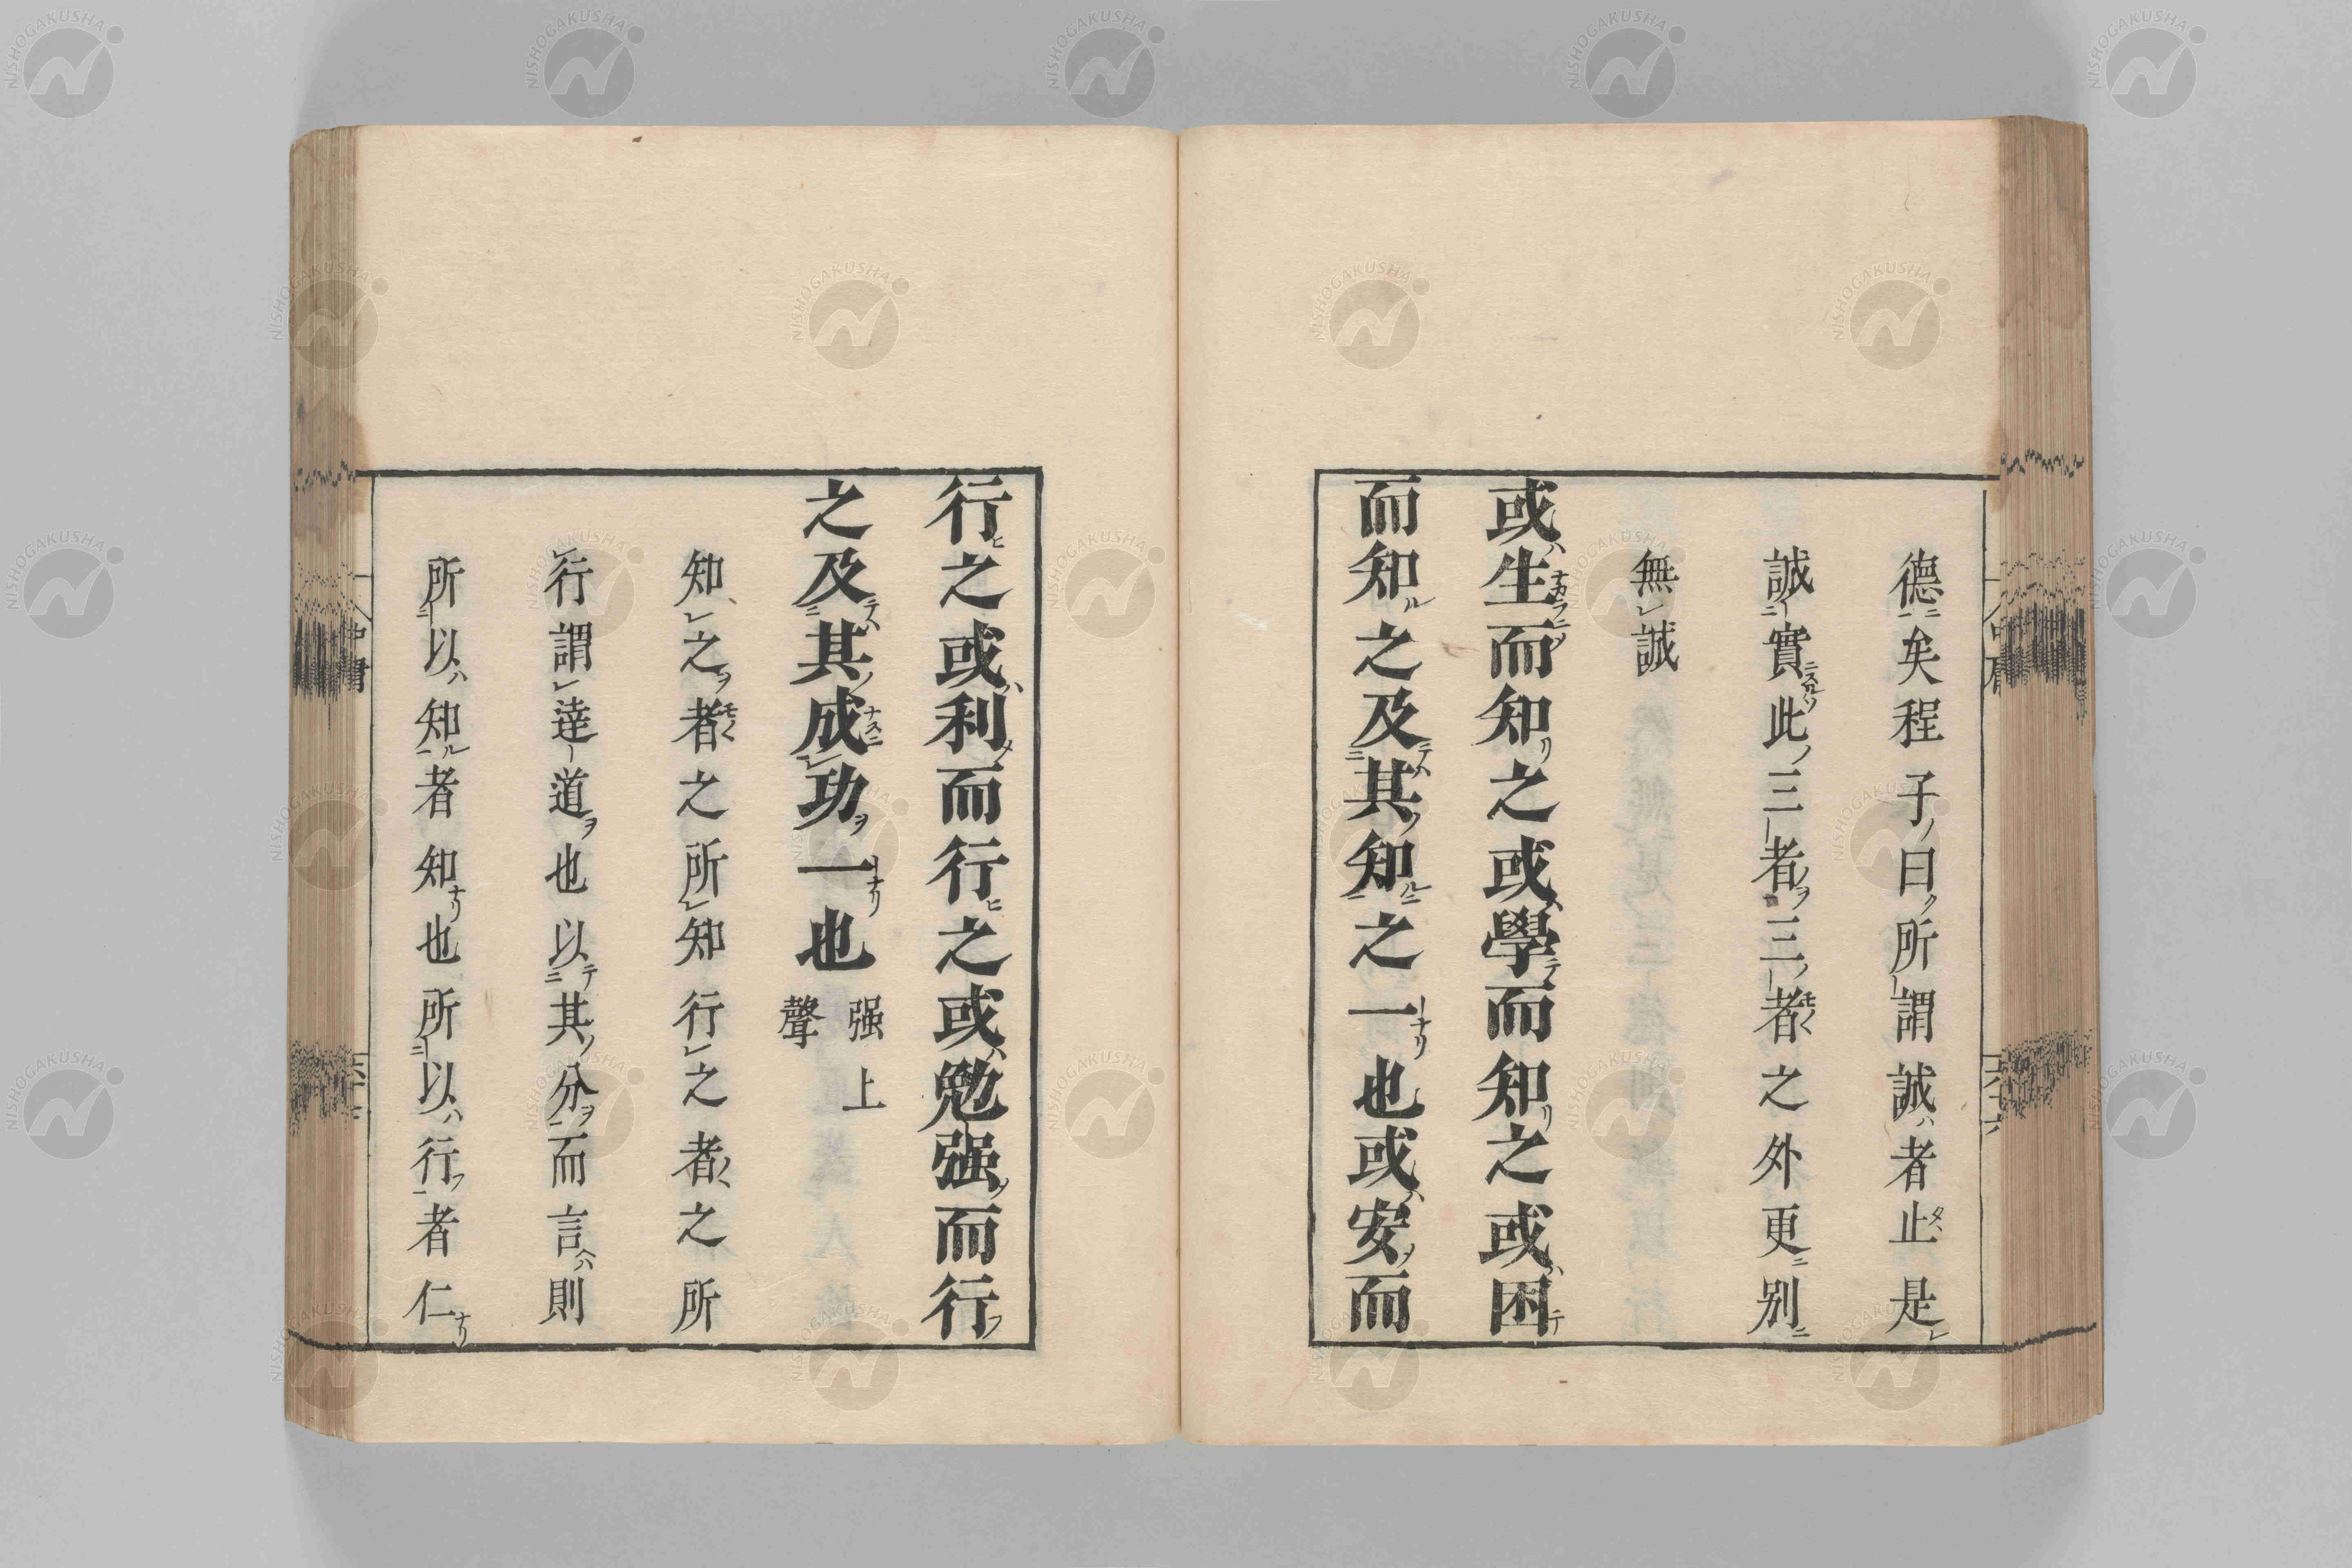 德矣程子曰所謂誠者止是
誠實此三者三者之外更別
無誠
或生而知之或學而知之或困
而知之及其知之一也或安而
行之或利而行之或勉强而行
之及其成功一也强上聲
知之者之所知行之者之所
行謂達道也以其分而言則
所以知者知也所以行者仁
中庸
NISHOGAKUSHA